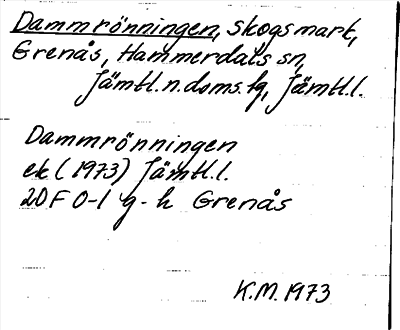 Dammrönningen, skogsmark,
Grenås, Hammerdals sn,
Jämtl.n.doms.lg, Jämtl.l.
Dammrönningen
ek (1973) Jämtl.l.
20 F 0-1 g-h Grenås
K.M. 1973